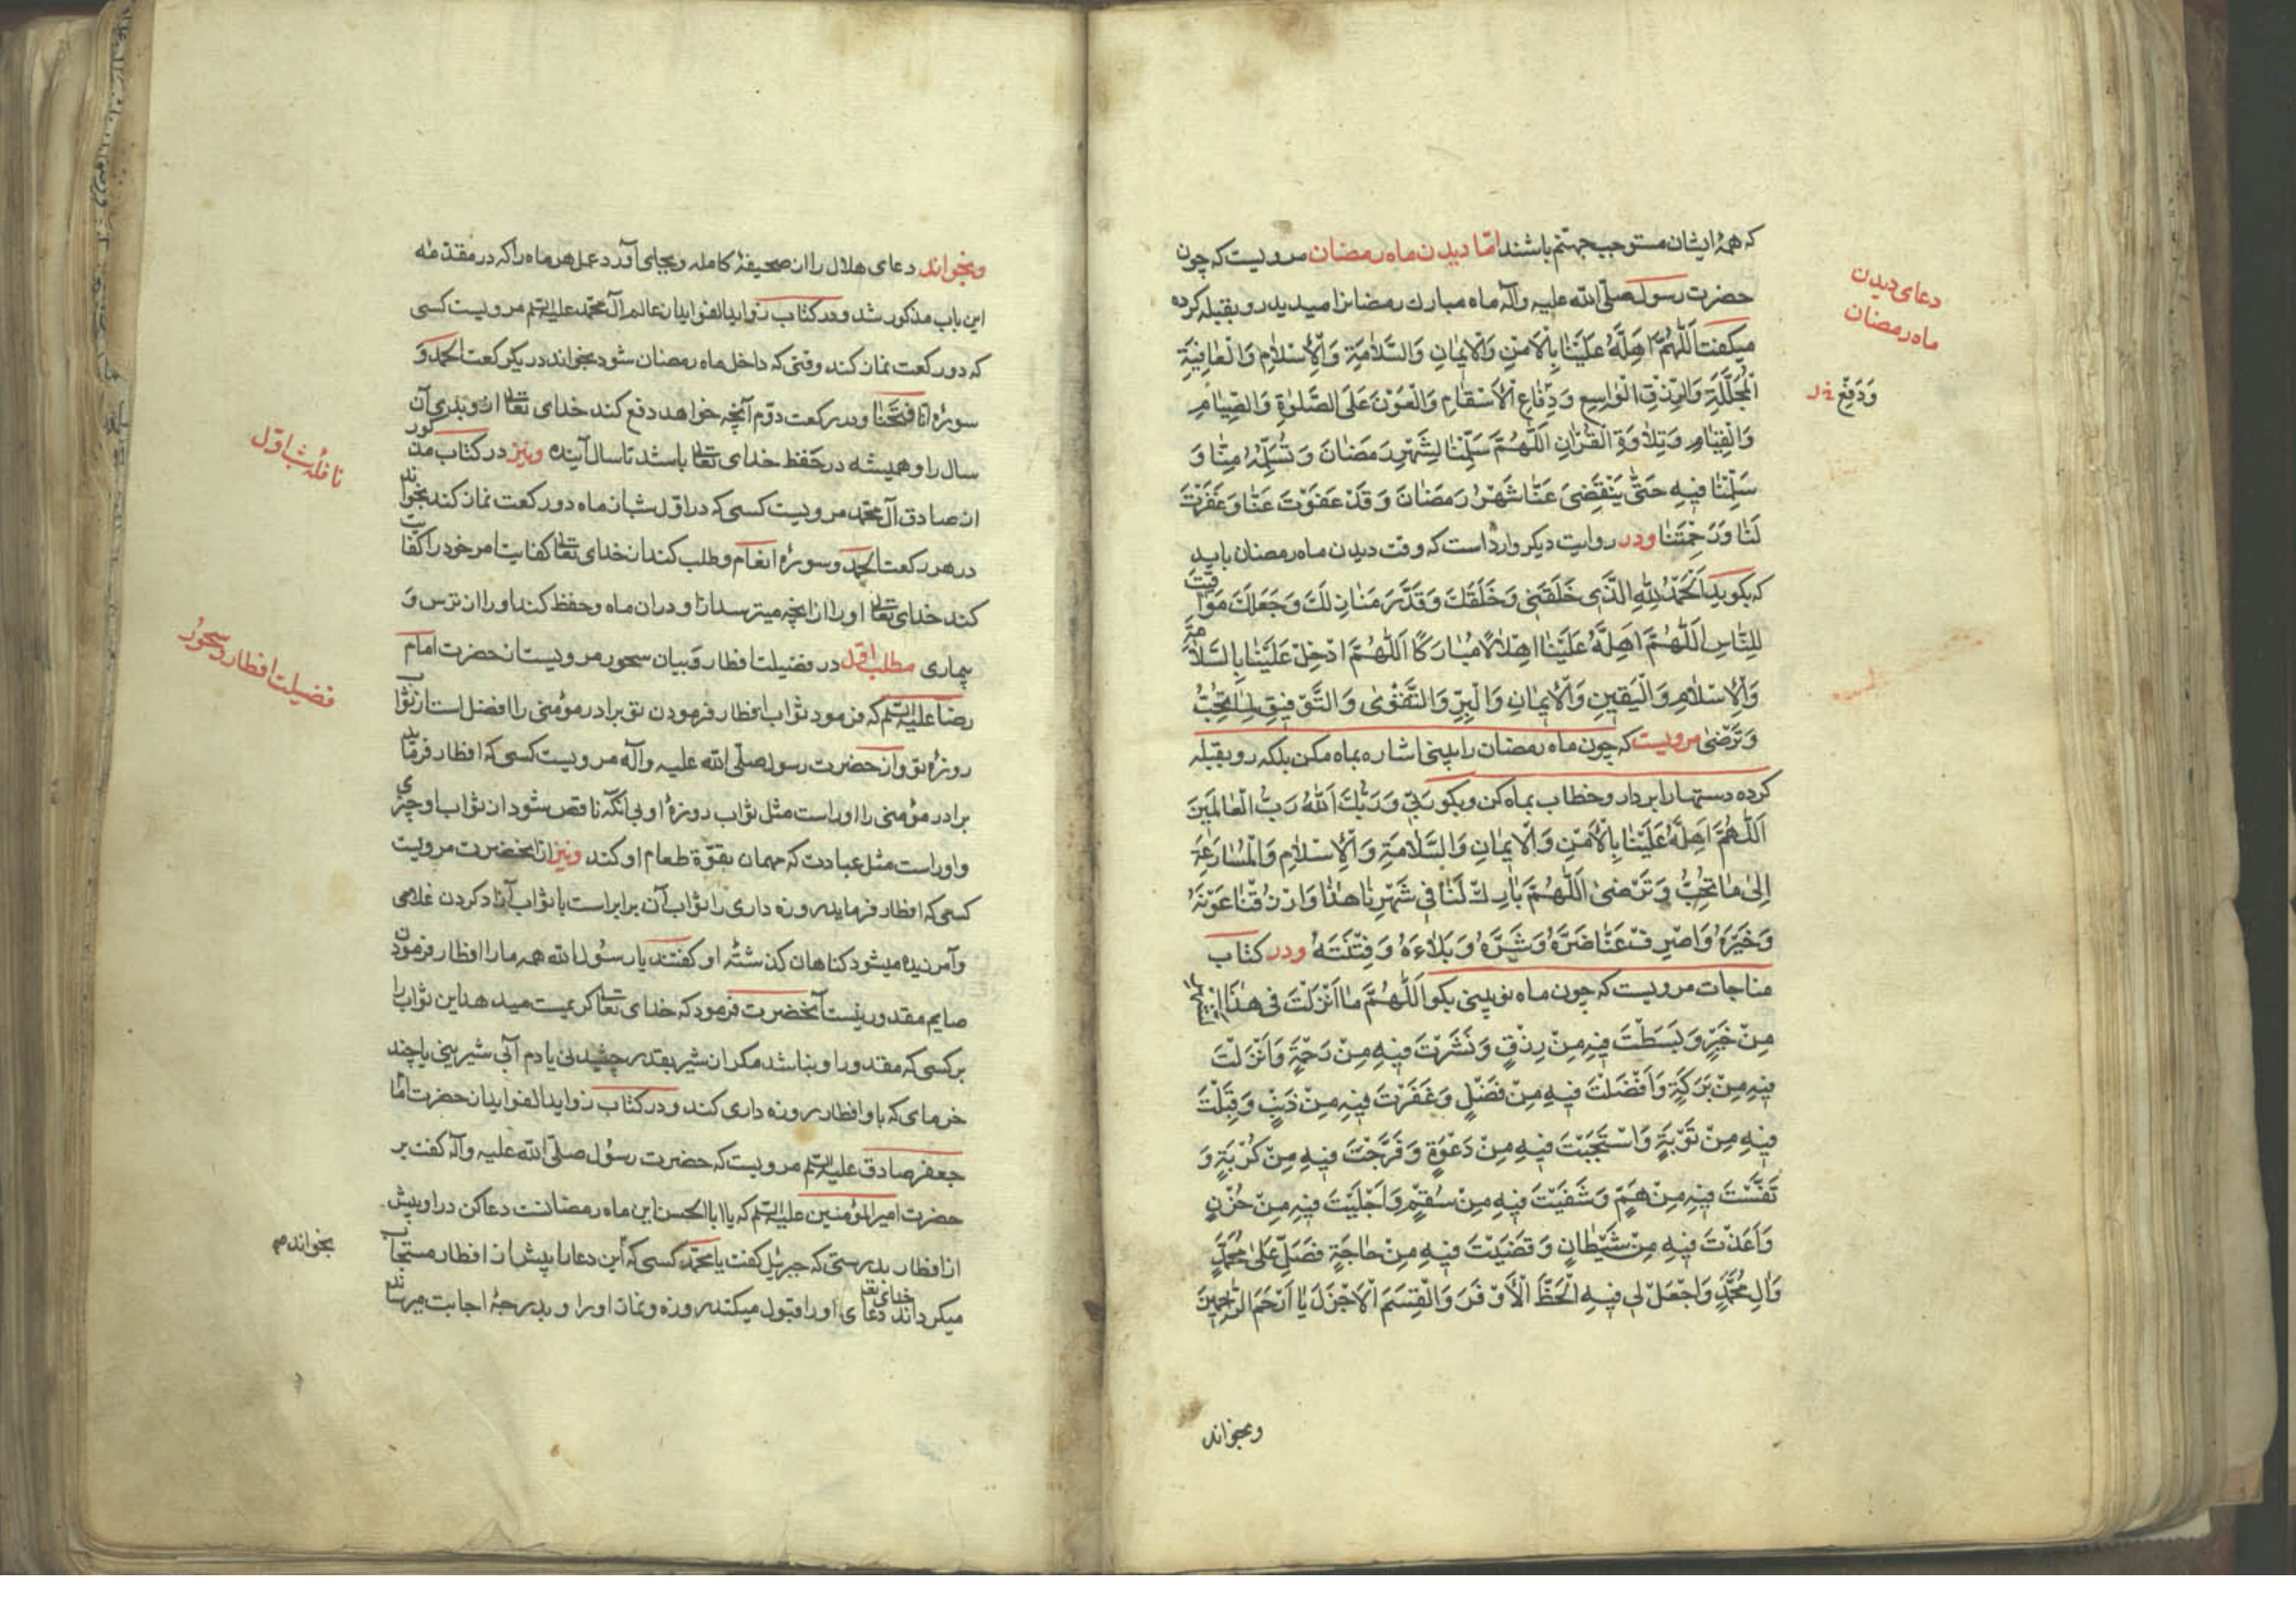 که همهٔ ایشان مستوجب جهنّم باشند امّا دیدن ماه رمضان مرویست که چون
دعای دیدن
ماه رمضان
حضرت رسول صلّی الله علیه وآله ماه مبارك رمضانرا میدید رو بقبله کرده
میکفت اَللّٰهُمَّ اَهِلَّهُ عَلَیْنٰا بِالْاَمْنِ وَالْایمٰانِ وَالسَّلٰامَةِ وَالْاِسْلٰامِ وَالْعٰافِیَةِ
الْمُجَلَّلَةِ وَالرِّزْقِ الْوٰاسِعِ وَدِفٰاعِ الْاَسْقٰامِ وَالْعَوْنِ عَلَی الصَّلٰوةِ وَالصِّیٰامِ
وَدَفْعِ
وَالْقِیٰامِ وَتِلٰاوَةِ الْقُرْاٰنِ اَللّٰهُمَّ سَلِّمْنٰا لِشَهْرِ رَمَضٰانَ وَتَسَلَّمْهُ مِنّٰا وَ
سَلِّمْنٰا فیهِ حَتّٰی یَنْقَضِیَ عَنّٰا شَهْرُ رَمَضٰانَ وَقَدْ عَفَوْتَ عَنّٰا وَغَفَرْتَ
لَنٰا وَرَحِمْتَنٰا ودر روایت دیکر وارد است که وقت دیدن ماه رمضان باید
که بکوید اَلْحَمْدُ لِلّٰهِ الَّذی خَلَقَنی وَخَلَقَكَ وَقَدَّرَ مَنٰازِلَكَ وَجَعَلَكَ مَوٰاقیتَ
لِلنّٰاسِ اَللّٰهُمَّ اَهِلَّهُ عَلَیْنٰا اِهْلٰالًا مُبٰارَکًا اَللّٰهُمَّ اَدْخِلْ عَلَیْنٰا بِالسَّلٰامَةِ
وَالْاِسْلٰامِ وَالْیَقینِ وَالْایمٰانِ وَالْبِرِّ وَالتَّقْوٰی وَالتَّوْفیقِ لِمٰا تُحِبُّ
وَتَرْضٰی مرویست که چون ماه رمضان را بینی اشاره بماه مکن بلکه رو بقبله
کرده دستها را بردار وخطاب بماه کن وبکو رَبّی وَرَبُّكَ اَللّٰهُ رَبُّ الْعٰالَمینَ
اَللّٰهُمَّ اَهِلَّهُ عَلَیْنٰا بِالْاَمْنِ وَالْایمٰانِ وَالسَّلٰامَةِ وَالْاِسْلٰامِ وَالْمُسٰارَعَةِ
اِلیٰ مٰا تُحِبُّ وَتَرْضٰی اَللّٰهُمَّ بٰارِكْ لَنٰا فی شَهْرِنٰا هٰذٰا وَارْزُقْنٰا عَوْنَهُ
وَخَیْرَهُ وَاصْرِفْ عَنّٰا ضَرَّهُ وَشَرَّهُ وَبَلٰاءَهُ وَفِتْنَتَهُ ودر کتاب
مناجات مرویست که چون ماه نو بینی بکو اَللّٰهُمَّ مٰا اَنْزَلْتَ فی هٰذَا الشَّهْرِ
مِنْ خَیْرٍ وَبَسَطْتَ فیهِ مِنْ رِزْقٍ وَنَشَرْتَ فیهِ مِنْ رَحْمَةٍ وَاَنْزَلْتَ
فیهِ مِنْ بَرَکَةٍ وَاَفْضَلْتَ فیهِ مِنْ فَضْلٍ وَغَفَرْتَ فیهِ مِنْ ذَنْبٍ وَقَبِلْتَ
فیهِ مِنْ تَوْبَةٍ وَاسْتَجَبْتَ فیهِ مِنْ دَعْوَةٍ وَفَرَّجْتَ فیهِ مِنْ کُرْبَةٍ وَ
نَفَّسْتَ فیهِ مِنْ هَمٍّ وَشَفَیْتَ فیهِ مِنْ سُقْمٍ وَاَجْلَیْتَ فیهِ مِنْ حُزْنٍ
وَاَعَذْتَ فیهِ مِنْ شَیْطٰانٍ وَقَضَیْتَ فیهِ مِنْ حٰاجَةٍ فَصَلِّ عَلیٰ مُحَمَّدٍ
وَاٰلِ مُحَمَّدٍ وَاجْعَلْ لی فیهِ الْحَظَّ الْاَوْفَرَ وَالْقِسَمَ الْاَجْزَلَ یٰا اَرْحَمَ الرّٰاحِمینَ
وبخواند
وبخواند دعای هلال را از صحیفهٔ کامله وبجای آورد عمل هر ماه را که در مقدّمه
این باب مذکور شد ودر کتاب زوایدالفواید از عالم آل محمّد علیه السّلم مرویست کسی
که دو رکعت نماز کند وقتی که داخل ماه رمضان شود بخواند در یك رکعت الحمد وَ
سورهٔ انّا فتحنا ودر رکعت دوّم آنچه خواهد دفع کند خدای تعالی از و بدی آن
سال را وهمیشه در حفظ خدای تعالی باشد تا سال آینده ونیز در کتاب مذکور
نافلهٔ شب اوّل
از صادق آل محمّد مرویست کسی که در اوّل شب از ماه دو رکعت نماز کند بخواند
در هر رکعت الحمد وسورهٔ انعام وطلب کند از خدای تعالی کفایت امر خود را کفایت
کند خدای تعالی او را از انچه میترسد از او در ان ماه وحفظ کند او را از ترس وَ
بیماری مطلب اوّل در فضیلت افطار وَ بیان سحور مرویست از حضرت امام
فضیلت افطار وسحور
رضا علیه السّلم که فرمود ثواب افطار فرمودن تو برادر مؤمنی را افضل است از ثواب
روزهٔ تو واز حضرت رسول صلّی الله علیه وآله مرویست کسی که افطار فرماید
برادر مؤمنی را او راست مثل ثواب روزهٔ او بی انکه ناقص شود از ثواب او چیزی
واو راست مثل عبادت که مهمان بقوّة طعام او کند ونیز از انحضرت مرویست
کسی که افطار فرماید روزه داری را ثواب آن برابر است با ثواب آزاد کردن غلامی
وآمرزیده میشود کناهان کذشتهٔ او کفتند یا رسول الله همه ما را افطار فرمودن
صایم مقدور نیست آنحضرت فرمود که خدای تعالی کریمست میدهد این ثواب را
بر کسی که مقدور او نباشد مکر از شیر بقدر چشیدنی یا دم آبی شیرینی یا چند
خرمای که باو افطار روزه داری کند ودر کتاب زوایدالفواید از حضرت امام
جعفر صادق علیه السّلم مرویست که حضرت رسول صلّی الله علیه وآله کفت بر
حضرت امیرالمؤمنین علیه السّلم که یا ابا الحسن این ماه رمضانست دعا کن در او پیش
از افطار بدرستی که جبرئیل کفت یا محمّد کسی که این دعا را پیش از افطار مستجاب
بخواند
میکرداند خدای تعالی دعای او را وقبول میکند روزه ونماز او را و بدرجهٔ اجابت میرساند